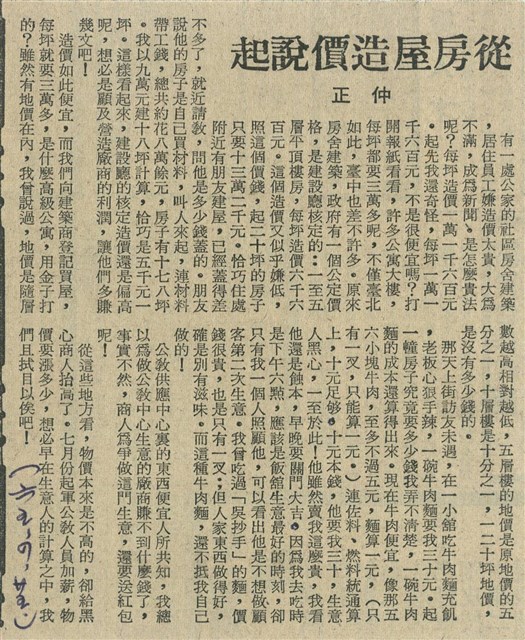 從房屋造價說起
仲正
有一處公家的社區房舍建築
，居住員工嫌造價太貴，大為
不滿，成為新聞。是怎麼貴法
呢？每坪造價一萬一千六百元
。起先我還奇怪，每坪一萬一
千六百元，不是很便宜嗎？打
開報紙看看，許多公寓大樓，
每坪都要三萬多呢，不僅臺北
如此，臺中也差不許多。原來
房舍建築，政府有一個公定價
格，是建設廳核定的：一至五
層平頂樓房，每坪造價六千六
百元。這個造價又似乎嫌低，
照這個價錢，起二十坪的房子
只要十三萬二千元。恰巧住處
附近有朋友建屋，已經蓋得差
不多了，就近請教，問他是多少錢蓋的。朋友
說他的房子是自己買材料，叫人來起，連材料
帶工錢，總共約花八萬餘元，房子有十七八坪
。我以九萬元建十八坪計算，恰巧是五千元一
坪。這樣看起來，建設廳的核定造價還是偏高
呢，想必是顧及營造廠商的利潤，讓他們多賺
幾文吧！
造價如此便宜，而我們向建築商登記買屋，
每坪就要三萬多，是什麼高級公寓，用金子打
的？雖然有地價在內，我曾說過，地價是隨層
數越高相對越低，五層樓的地價是原地價的五
分之一，十層樓是十分之一，一二十坪地價，
是沒有多少錢的。
那天上街訪友未遇，在一小舘吃牛肉麵充飢
，老板心狠手辣，一碗牛肉麵要我三十元。起
一幢房子究竟要多少錢我弄不清楚，一碗牛肉
麵的成本還算得出來。現在牛肉便宜，像那五
六小塊牛肉，至多不過五元，麵算一元，（只
有一叉，只能算一元。）連佐料、燃料統通算
上，十元足够。十元本錢，他要我三十，生意
人黑心，一至於此！他雖然賣我這麼貴，我看
他還是蝕本，早晚要關門大吉。因為我去吃時
是下午六點，應該是飯舘生意最好的時刻，卻
只有我一個人照顧他，可以看出他是不想做顧
客第二次生意。我曾吃過「吳抄手」的麵，價
錢很貴，也是只有一叉；但人家東西做得好，
確是別有滋味。而這種牛肉麵，還不抵我自己
做的！
公教供應中心裏的東西便宜人所共知，我總
以為做公教中心生意的廠商賺不到什麼錢了，
事實不然，商人為爭做這門生意，還要送紅包
呢！
從這些地方看，物價本來是不高的，卻給黑
心商人抬高了。七月份起軍公教人員加薪，物
價要漲多少，想必早在生意人的計算之中，我
們且拭目以俟吧！